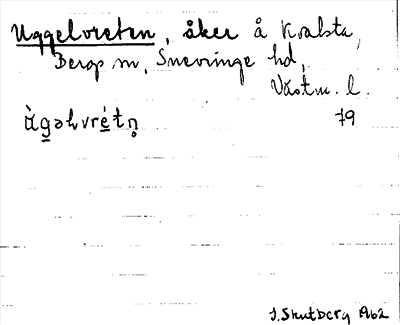 Uggelvreten, åker å Kvalsta,
Bergs sn, Snevringe hd,
Västm. l.
ùgəlvrétn̥ 79
J. Skutberg 1962